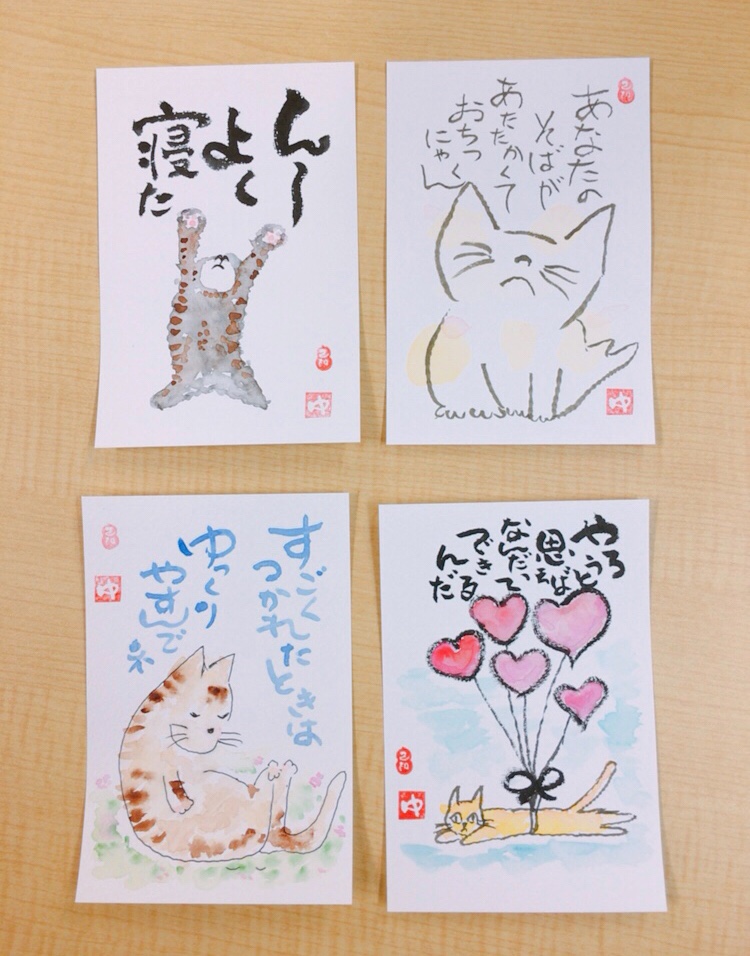 ん〜
よく
寝た
あなたの
そばが
あたたかくて
おちつく
にゃん
すごく
つかれたときは
ゆっくり
やすんで
ネ
やろうと
思えば
なんだって
できる
んだ
ゆ
ゆ
ゆ
ゆ